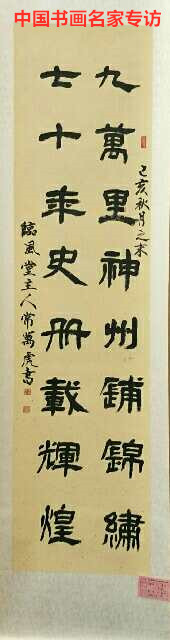 中国书画名家专访
九萬里神州鋪錦繡
己亥秋月之末
七十年史册載輝煌
臨風堂主人常萬虎書